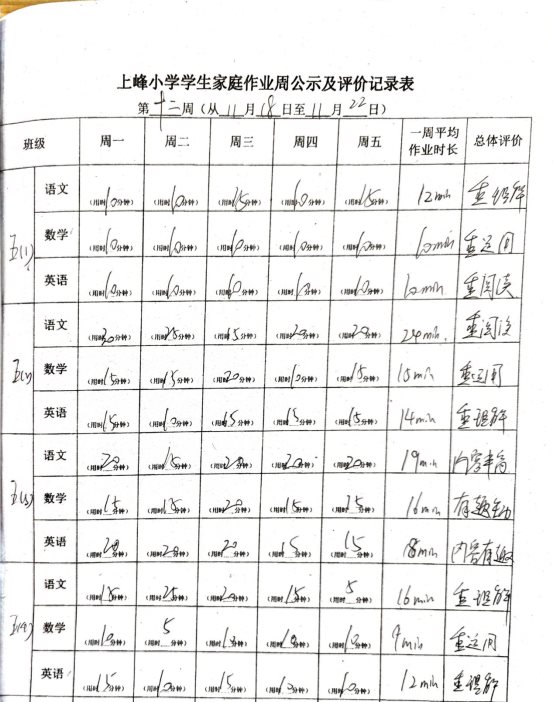 上峰小学学生家庭作业周公示及评价记录表
第十二周（从11月18日至11月22日）
班级 周一 周二 周三 周四 周五 一周平均作业时长 总体评价
五(1) 语文 （用时10分钟） （用时10分钟） （用时15分钟） （用时10分钟） （用时15分钟） 12min 重理解
数学 （用时10分钟） （用时10分钟） （用时10分钟） （用时10分钟） （用时10分钟） 10min 重运用
英语 （用时10分钟） （用时10分钟） （用时10分钟） （用时10分钟） （用时10分钟） 10min 重阅读
语文 （用时30分钟） （用时25分钟） （用时15分钟） （用时20分钟） （用时20分钟） min 重阅读
数学 （用时15分钟） （用时15分钟） （用时20分钟） （用时10分钟） （用时15分钟） 15min 重运用
英语 （用时15分钟） （用时10分钟） （用时15分钟） （用时15分钟） （用时15分钟） 14min 重理解
五(3) 语文 （用时20分钟） （用时15分钟） （用时20分钟） （用时20分钟） （用时20分钟） 19min 内容丰富
数学 （用时15分钟） （用时15分钟） （用时20分钟） （用时15分钟） （用时15分钟） 16min
英语 （用时20分钟） （用时20分钟） （用时20分钟） （用时15分钟） （用时15分钟） 18min 内容有趣
五(4) 语文 （用时15分钟） （用时25分钟） （用时20分钟） （用时15分钟） （用时5分钟） 16min 重理解
数学 （用时10分钟） （用时5分钟） （用时10分钟） （用时10分钟） （用时10分钟） 9min 重运用
英语 （用时15分钟） （用时10分钟） （用时15分钟） （用时10分钟） （用时10分钟） 12min 重理解